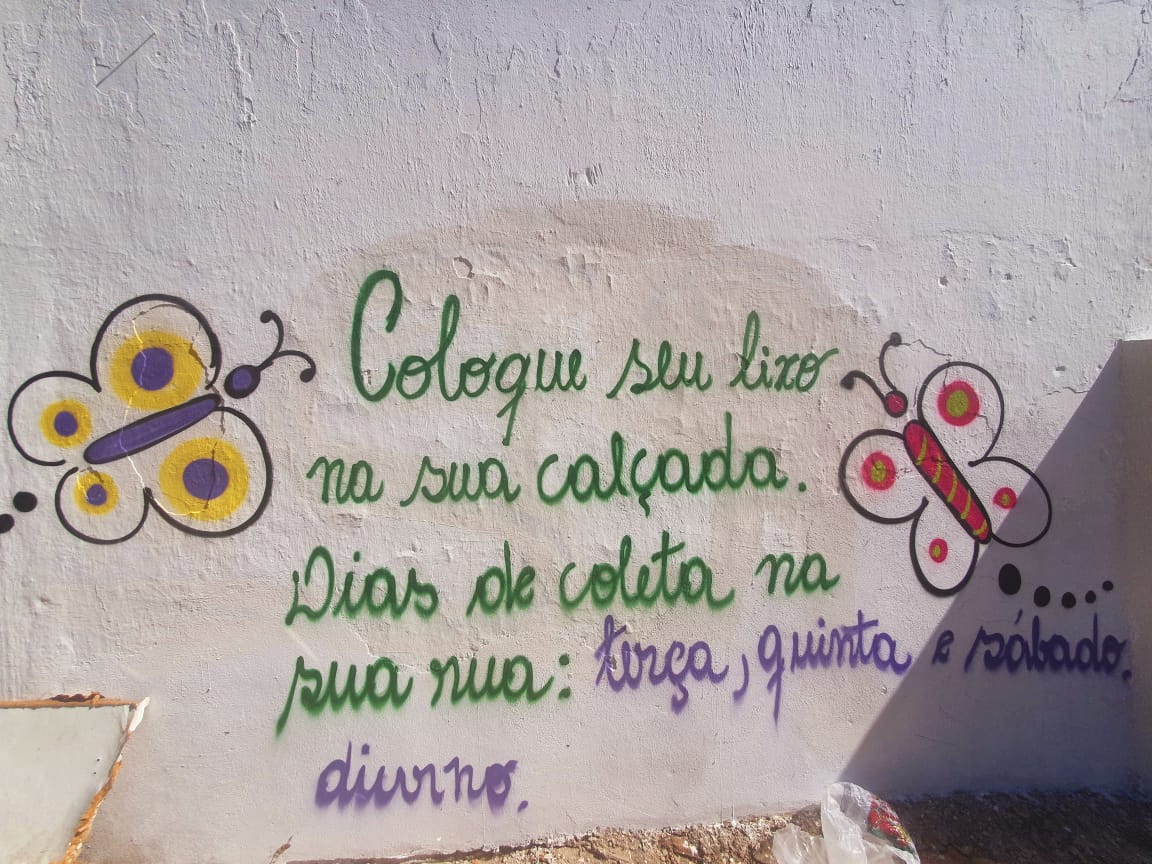 Coloque seu lixo
na sua calçada.
Dias de coleta na
sua rua: terça, quinta e sábado.
diurno.